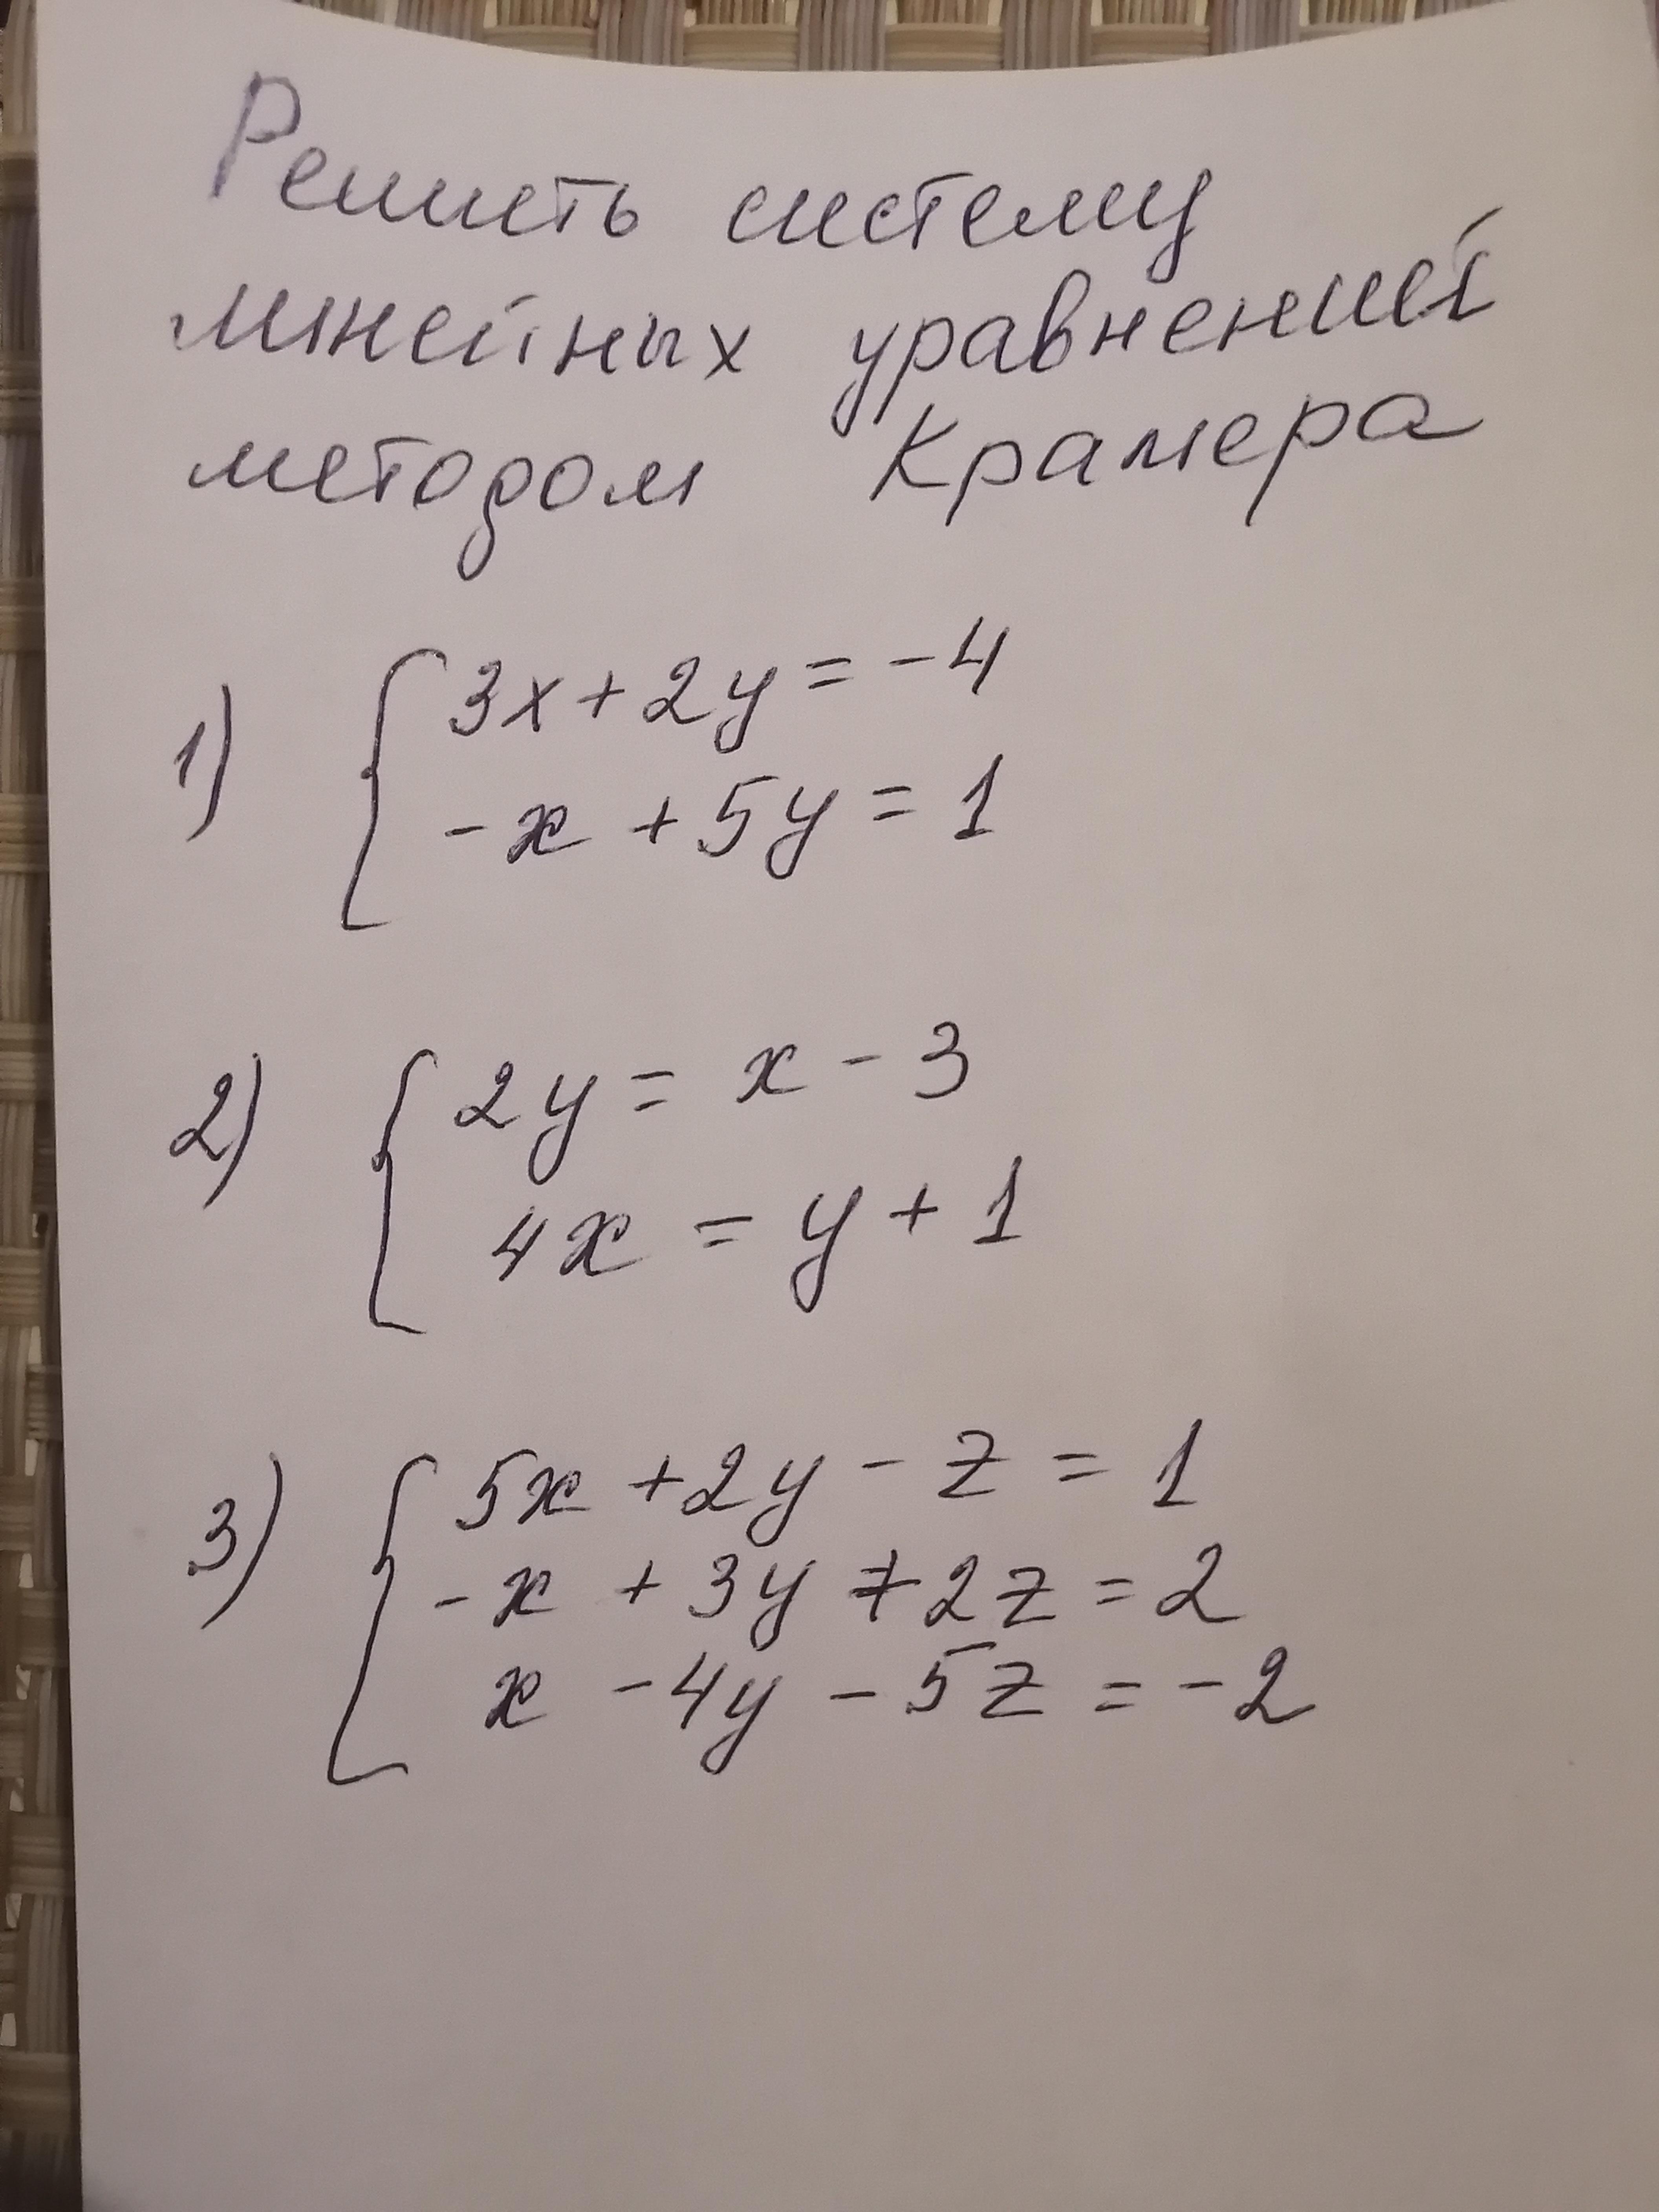 Решить систему
линейных уравнений
методом Крамера
1) { 3x + 2y = -4
-x + 5y = 1
2) { 2y = x - 3
4x = y + 1
3) { 5x + 2y - z = 1
-x + 3y + 2z = 2
x - 4y - 5z = -2